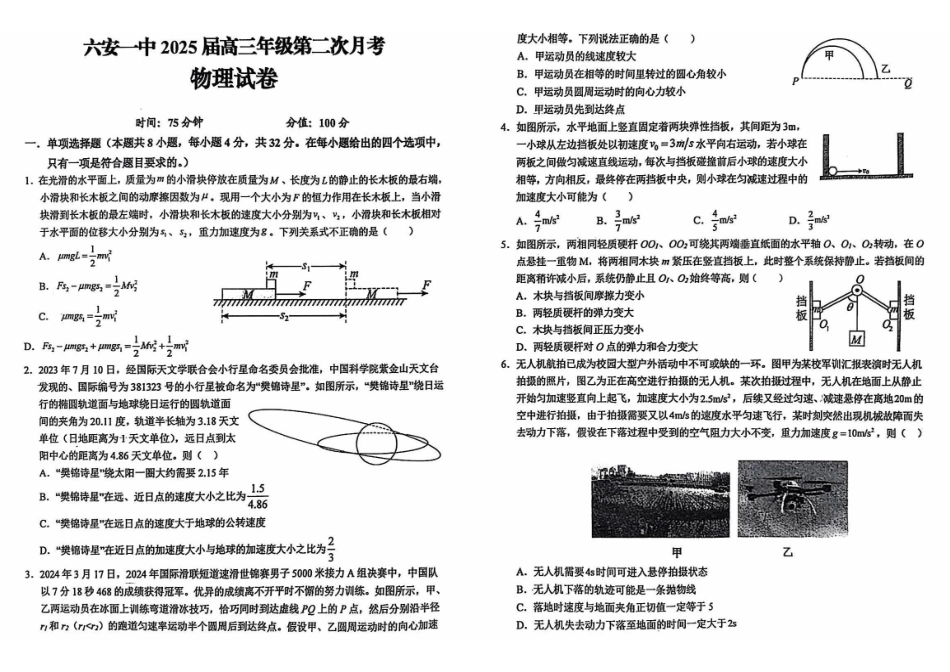 六安一中 2025 届高三年级第二次月考
物理试卷
时间：75 分钟 分值：100 分
一．单项选择题（本题共 8 小题，每小题 4 分，共 32 分。在每小题给出的四个选项中，
只有一项是符合题目要求的。）
1．在光滑的水平面上，质量为m 的小滑块停放在质量为M 、长度为L的静止的长木板的最右端，
小滑块和长木板之间的动摩擦因数为μ。现用一个大小为F 的恒力作用在长木板上，当小滑
块滑到长木板的最左端时，小滑块和长木板的速度大小分别为v₁、v₂，小滑块和长木板相对
于水平面的位移大小分别为s₁、s₂，重力加速度为g。下列关系式不正确的是（ ）
A．μmgL=1/2mv₁²
B．Fs₂−μmgs₂=1/2Mv₂²
C．μmgs₁=1/2mv₁²
D．Fs₂−μmgs₂+μmgs₁=1/2Mv₂²+1/2mv₁²
s₁
m
m
M
F
M
F
s₂
2．2023 年 7 月 10 日，经国际天文学联合会小行星命名委员会批准，中国科学院紫金山天文台
发现的、国际编号为 381323 号的小行星被命名为“樊锦诗星”。如图所示，“樊锦诗星”绕日运
行的椭圆轨道面与地球绕日运行的圆轨道面
间的夹角为 20.11 度，轨道半长轴为 3.18 天文
单位（日地距离为 1 天文单位），远日点到太
阳中心的距离为 4.86 天文单位。则（ ）
A．“樊锦诗星”绕太阳一圈大约需要 2.15 年
B．“樊锦诗星”在远、近日点的速度大小之比为1.5/4.86
C．“樊锦诗星”在远日点的速度大于地球的公转速度
D．“樊锦诗星”在近日点的加速度大小与地球的加速度大小之比为2/3
3．2024 年 3 月 17 日，2024 年国际滑联短道速滑世锦赛男子 5000 米接力 A 组决赛中，中国队
以 7 分 18 秒 468 的成绩获得冠军。优异的成绩离不开平时不懈的努力训练。如图所示，甲、
乙两运动员在冰面上训练弯道滑冰技巧，恰巧同时到达虚线 PQ 上的 P 点，然后分别沿半径
r₁和 r₂（r₁<r₂）的跑道匀速率运动半个圆周后到达终点。假设甲、乙圆周运动时的向心加速
度大小相等。下列说法正确的是（ ）
A．甲运动员的线速度较大
B．甲运动员在相等的时间里转过的圆心角较小
C．甲运动员圆周运动时的向心力较小
D．甲运动员先到达终点
甲
乙
P
Q
4．如图所示，水平地面上竖直固定着两块弹性挡板，其间距为 3m，
一小球从左边挡板处以初速度v₀=3m/s 水平向右运动，若小球在
两板之间做匀减速直线运动，每次与挡板碰撞前后小球的速度大小
相等，方向相反，最终停在两挡板中央，则小球在匀减速过程中的
加速度大小可能为（ ）
v₀
A．4/7m/s² B．3/7m/s² C．4/5m/s² D．2/3m/s²
5．如图所示，两相同轻质硬杆 OO₁、OO₂可绕其两端垂直纸面的水平轴 O、O₁、O₂转动，在 O
点悬挂一重物 M，将两相同木块 m 紧压在竖直挡板上，此时整个系统保持静止。若挡板间的
距离稍许减小后，系统仍静止且 O₁、O₂始终等高，则（ ）
A．木块与挡板间摩擦力变小
B．两轻质硬杆的弹力变大
C．木块与挡板间正压力变小
D．两轻质硬杆对 O 点的弹力和合力变大
挡板
挡板
O
θ
m
m
O₁
O₂
M
6．无人机航拍已成为校园大型户外活动中不可或缺的一环。图甲为某校军训汇报表演时无人机
拍摄的照片，图乙为正在高空进行拍摄的无人机。某次拍摄过程中，无人机在地面上从静止
开始匀加速竖直向上起飞，加速度大小为 2.5m/s²，后续又经过匀速、减速悬停在离地20m 的
空中进行拍摄，由于拍摄需要又以 4m/s 的速度水平匀速飞行，某时刻突然出现机械故障而失
去动力下落，假设在下落过程中受到的空气阻力大小不变，重力加速度 g=10m/s²，则（ ）
甲 乙
A．无人机需要4s时间可进入悬停拍摄状态
B．无人机下落的轨迹可能是一条抛物线
C．落地时速度与地面夹角正切值一定等于 5
D．无人机失去动力下落至地面的时间一定大于2s